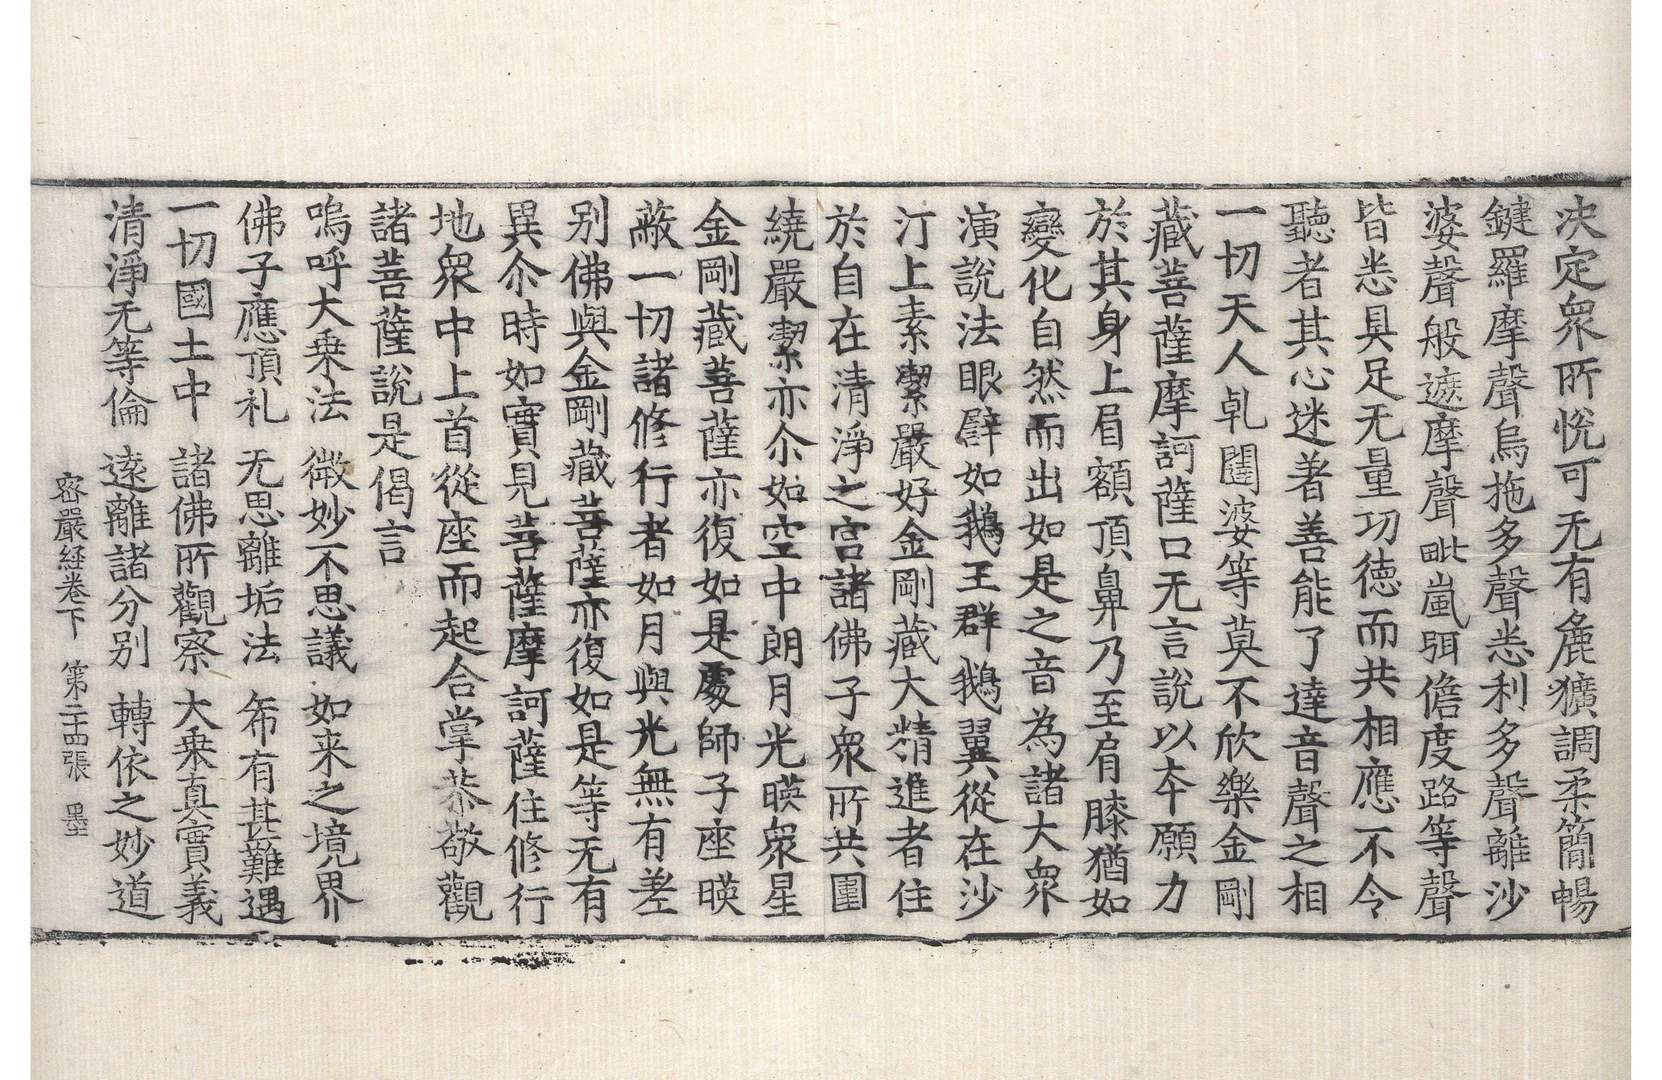 决定衆所悅可无有麁獷調柔簡暢
鍵羅摩聲烏拖多聲悉利多聲離沙
婆聲般遮摩聲毗嵐弭儋度路等聲
皆悉具足无量功德而共相應不令
聽者其心迷著善能了達音聲之相
一切天人乹闥婆等莫不欣樂金剛
藏菩薩摩訶薩口无言說以夲願力
於其身上眉額頂鼻乃至肩膝猶如
變化自然而出如是之音為諸大衆
演說法眼譬如鵝王群鵝翼從在沙
汀上素潔嚴好金剛藏大精進者住
於自在清淨之宮諸佛子衆所共圍
繞嚴潔亦尒如空中朗月光暎衆星
金剛藏菩薩亦復如是處師子座暎
蔽一切諸修行者如月與光無有差
别佛與金剛藏菩薩亦復如是等无有
異尒時如實見菩薩摩訶薩住修行
地衆中上首從座而起合掌恭敬觀
諸菩薩說是偈言
嗚呼大乗法 微妙不思議 如来之境界
佛子應頂礼 无思離垢法 希有甚難遇
一切國土中 諸佛所觀察 大乗真實義
清淨无等倫 遠離諸分别 轉依之妙道
密嚴経卷下 第二十四張 墨